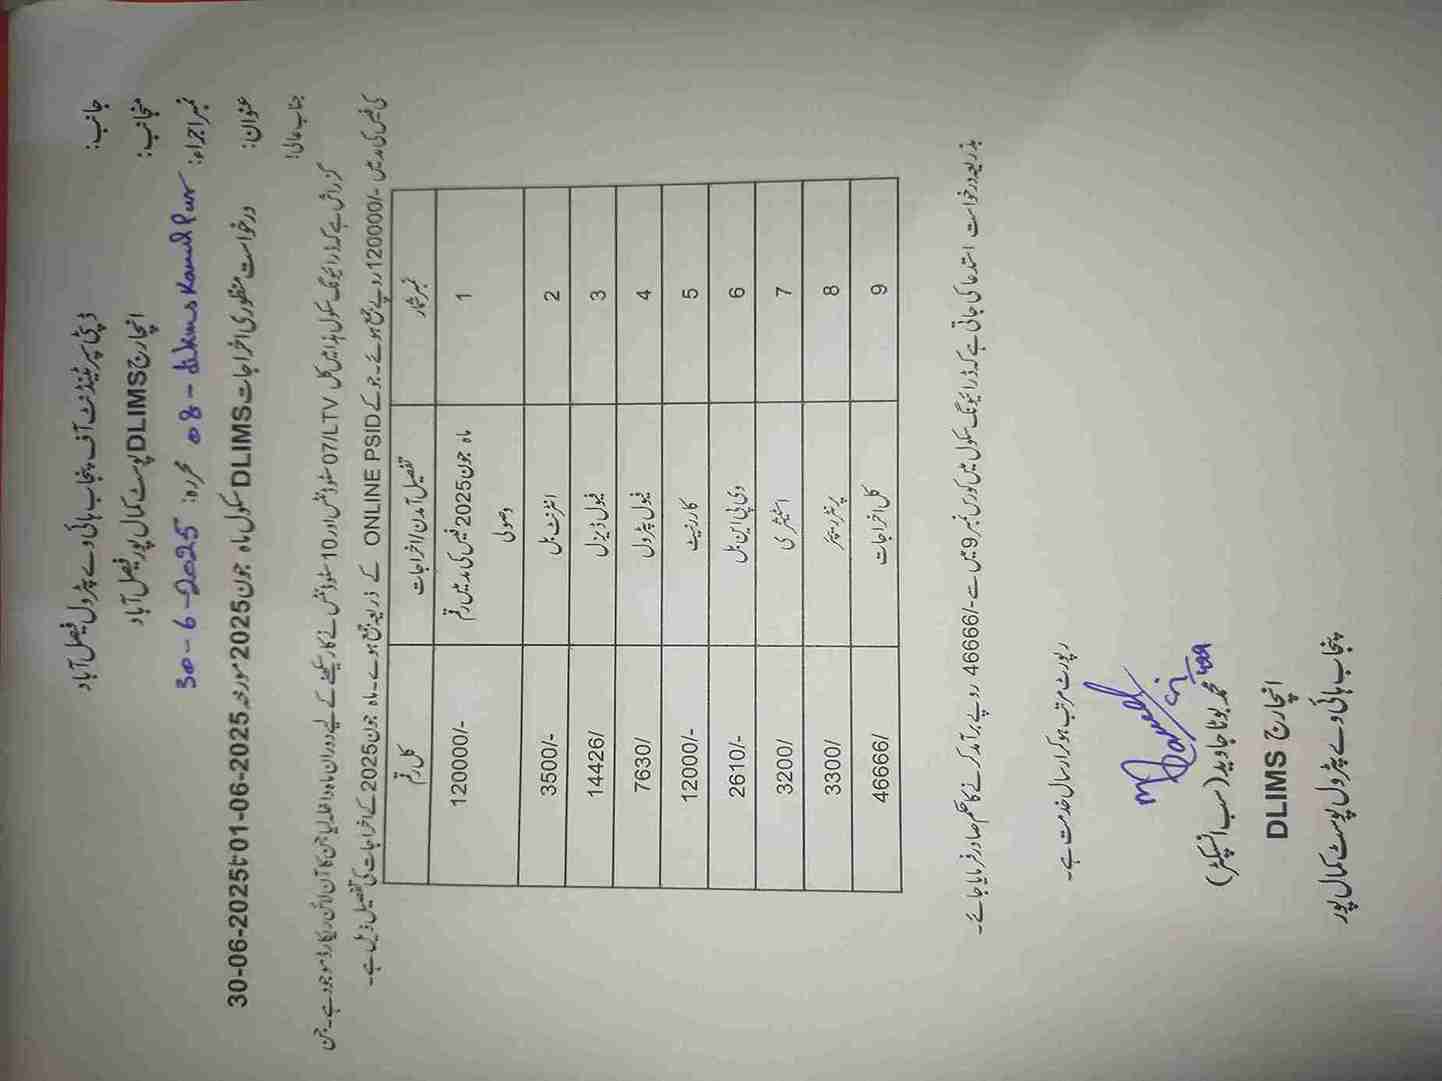 جانب: ڈپٹی سپرنٹنڈنٹ آف پنجاب ہائی وے پٹرول فیصل آباد
منجانب: انچارج DLIMS پوسٹ کمال پور فیصل آباد
نمبر اجراء: 08-dlims Kamal Pur محررہ: 30-6-2025
عنوان: درخواست منظوری اخراجات DLIMS سکول ماہ جون 2025 مورخہ 01-06-2025 تا 30-06-2025
جناب عالی!
گزارش ہے کہ ڈرائیونگ سکول ہذا میں کل 07/LTV سٹوڈنٹس اور 10 سٹوڈنٹس نے کار سیکھنے کے لیے دوران ماہ داخلہ لیا جن کا آن لائن ریکارڈ موجود ہے۔ جن
کی فیس کی مد میں -/120000 روپے جمع ہوئے۔ جو کے ONLINE PSID کے ذریعہ جمع ہوئے۔ ماہ جون 2025 کے اخراجات کی تفصیل ذیل ہے۔
نمبر شمار تفصیل آمدن/اخراجات کل رقم
1 ماہ جون 2025 فیس کی مد میں رقم وصولی 120000/-
2 انٹرنٹ بل 3500/-
3 فیول ڈیزل 14426/
4 فیول پٹرول 7630/
5 کار رینٹ 12000/-
6 وی پی این بل 2610/-
7 اسٹیشنری 3200/
8 پرنٹر و پیپر 3300/
9 کل اخراجات 46666/
بذریعہ درخواست استدعا کی جاتی ہے کہ ڈرائیونگ سکول میں کوری نمبر 9 میں سے -/46666 روپے برآمد کرنے کا حکم صادر فرمایا جائے۔
رپورٹ مرتب ہو کر ارسال خدمت ہے۔
محمد بوٹا جاوید (سب انسپکٹر)
انچارج DLIMS
پنجاب ہائی وے پٹرول پوسٹ کمال پور